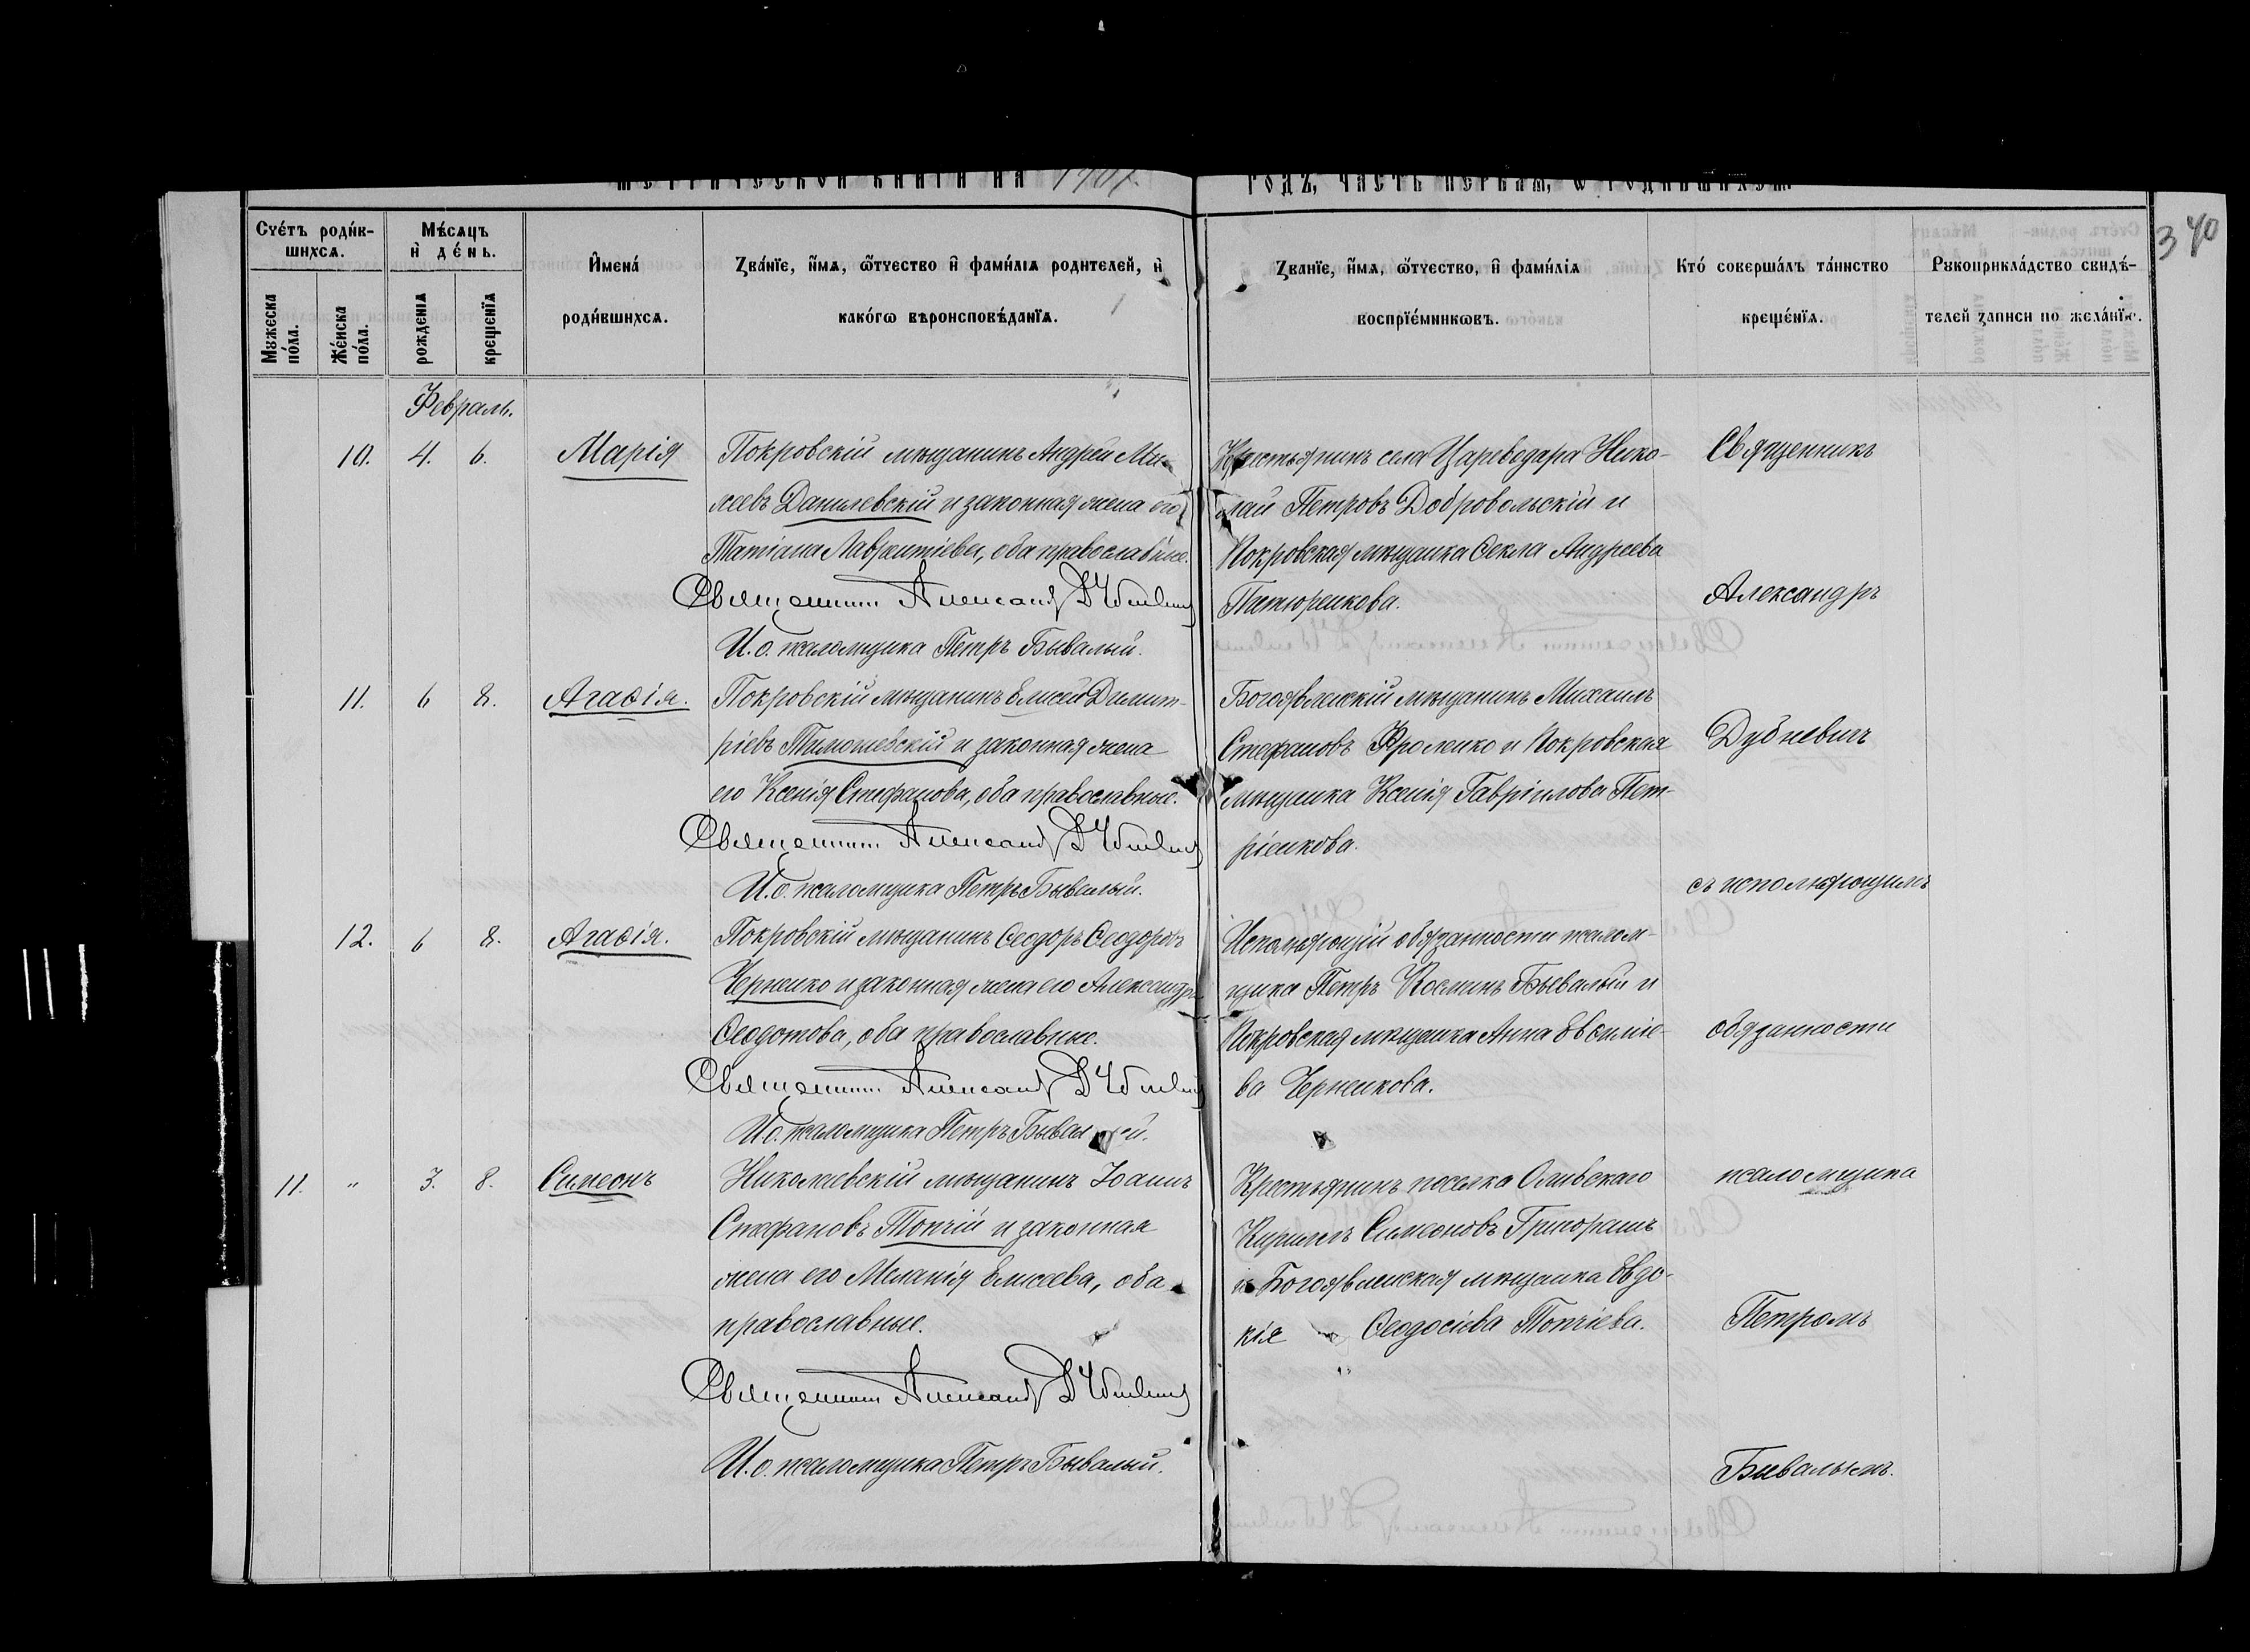 МЕТРИЧЕСКОЙ КНИГИ НА 1907.
ГОДЪ, ЧАСТЬ ПЕРВАЯ, Ѡ РОДИВШИХСЯ.
340
Счетъ родив-
шихся.
Мужеска пола.
Женска пола.
Месяцъ и день.
рожденія
крещенїя
Имена родившихся.
Званїе, имя, ѿчество и фамилія родителей, и
какогѡ вѣроисповѣданїя.
Званїе, имя, ѿчество, и фамилія
воспрїемникѡвъ.
Кто совершалъ таинство
крещенїя.
Рукоприкладство свидѣ-
телей записи по желанїю.
Февраль.
10. 4. 6. Марія
Покровскій мѣщанинъ Андрей Ми-
хеевъ Данилевскій и законная жена его
Татіана Лаврентіева, оба православные.
Священникъ Александръ Дубневичъ
И. о. псаломщика Петръ Бывалый.
Крестьянинъ села Цареводара Нико-
лай Петровъ Добровольскій и
Покровская мѣщанка Ѳекла Андреева
11. 6 8. Агаѳія.
Покровскій мѣщанинъ Елисей Димит-
ріевъ Тимошевскій и законная жена
его Ксенія Стефанова, оба православные.
Священникъ Александръ Дубневичъ
И. о. псаломщика Петръ Бывалый.
Богоявленскій мѣщанинъ Михаилъ
Стефановъ Фроленко и Покровская
мѣщанка Ксенія Гавріилова Пет-
ріенкова.
12. 6 8. Агаѳія.
Покровскій мѣщанинъ Ѳеодоръ Ѳеодоровъ
Черненко и законная жена его Александра
Ѳеодотова, оба православные.
Священникъ Александръ Дубневичъ
И. о. псаломщика Петръ Бывалый.
Исполняющій обязанности псалом-
щика Петръ Косминъ Бывалый и
Покровская мѣщанка Анна Евѳиміе-
ва Черненкова.
11. " 3. 8. Симеонъ
Николаевскій мѣщанинъ Іоаннъ
Стефановъ Топчій и законная
жена его Меланія Елисеева, оба
православные.
Священникъ Александръ Дубневичъ
И. о. псаломщика Петръ Бывалый.
Крестьянинъ поселка Оливскаго
Кириллъ Симеоновъ Григорашъ
и Богоявленская мѣщанка Евдо-
кія Ѳеодосіева Топчіева.
Священникъ
Александръ
Дубневичъ
съ исполняющимъ
обязанности
псаломщика
Петромъ
Бывалымъ.